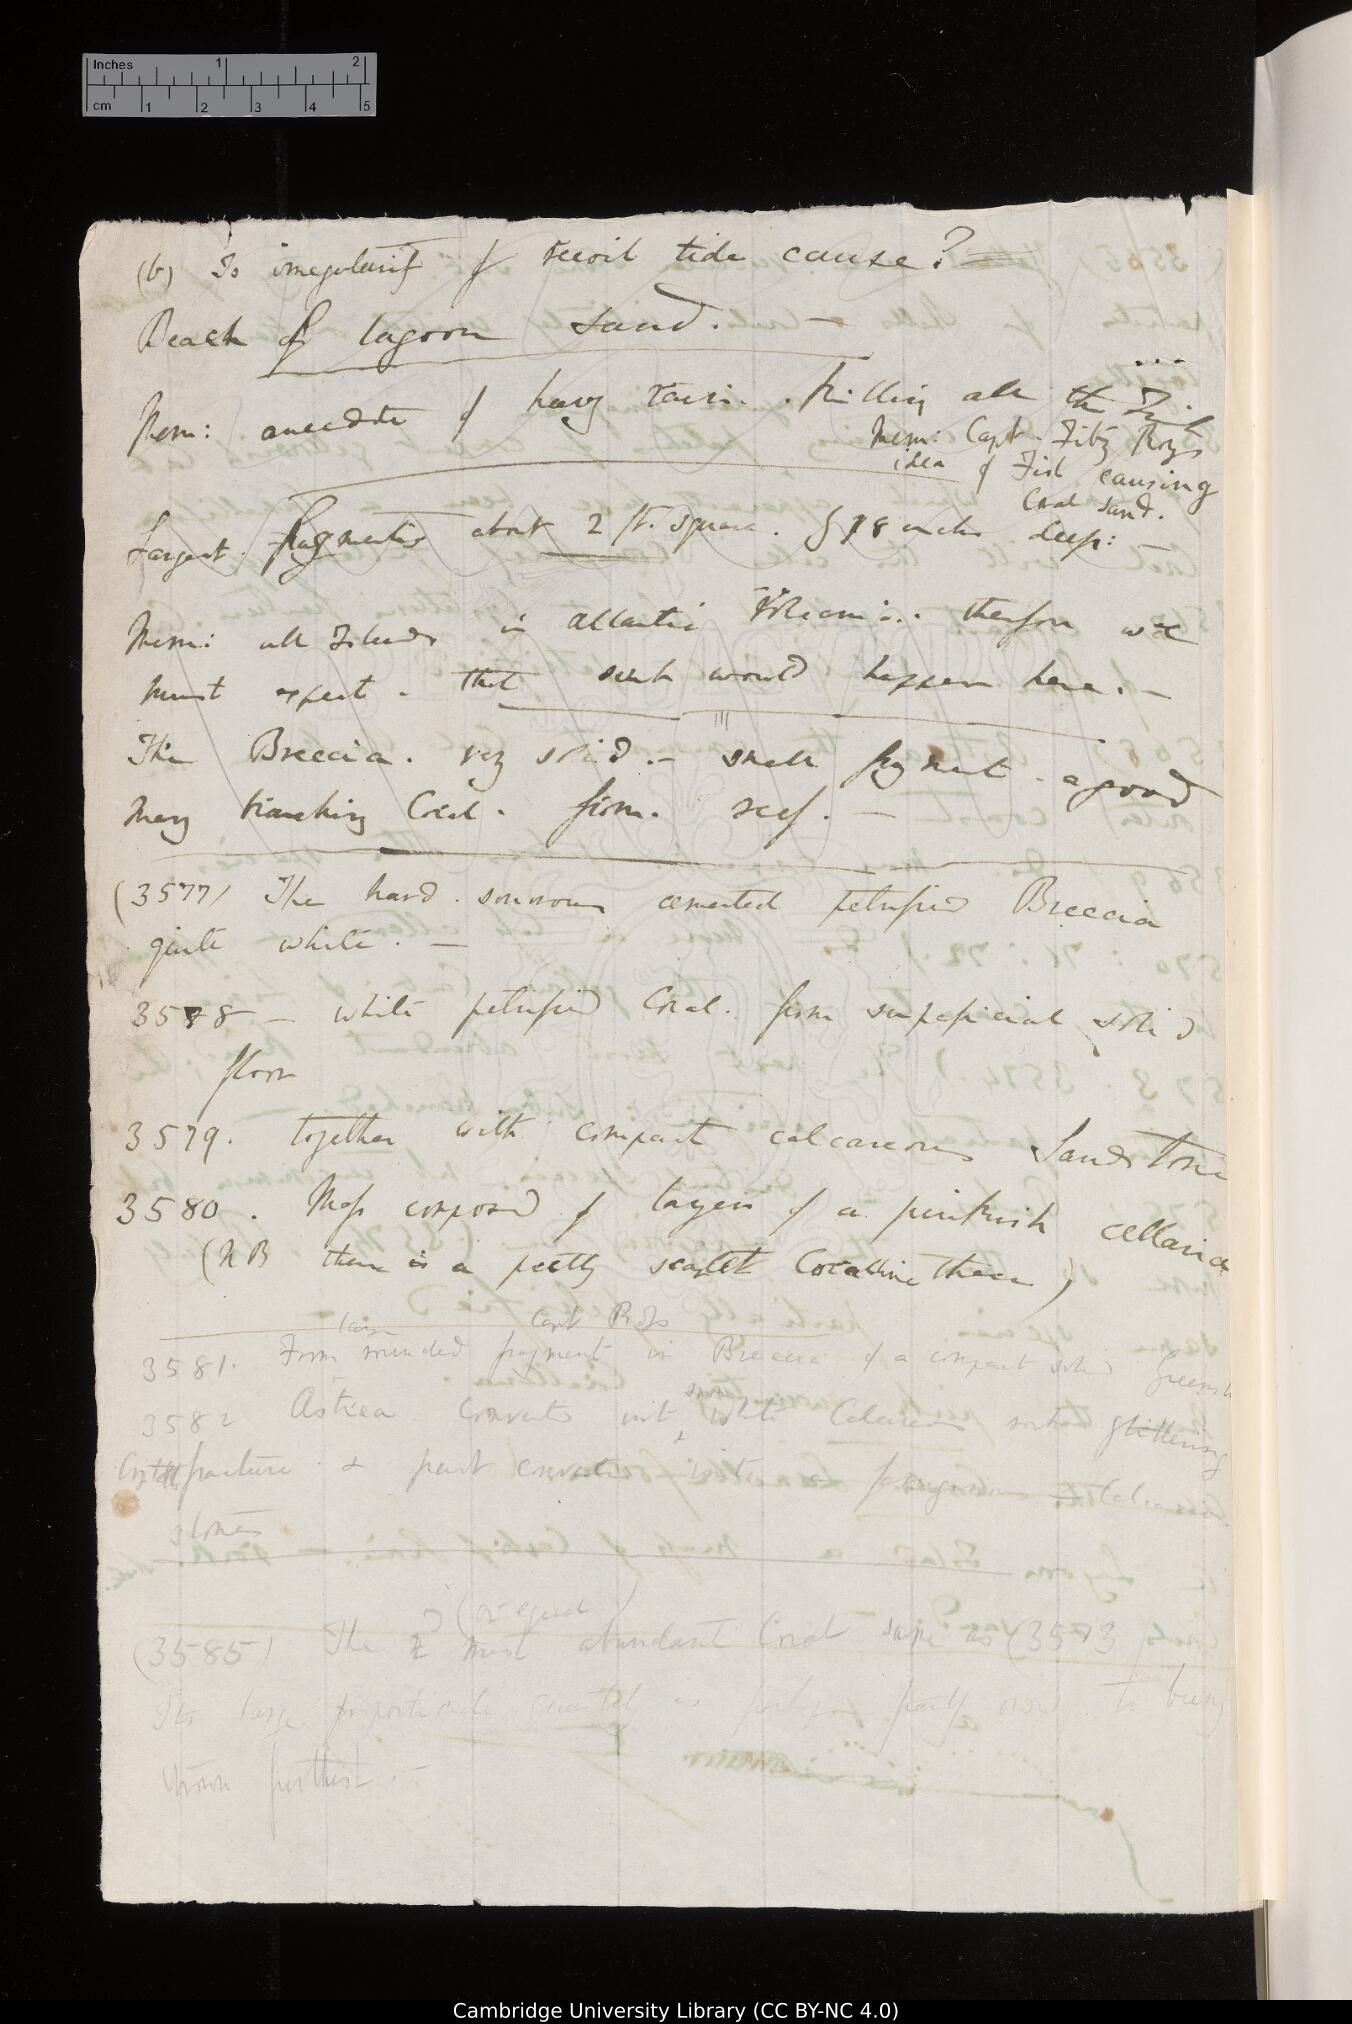 Inches 1 2
cm 1 2 3 4 5
(b) Is irregularity of recoil tide cause? —
Beach of lagoon sand. —
Mem: anecdote of heavy rain. killing all the Fish
Mem: Capt. Fitz Roys
idea of Fish causing
Coral sand.
Largest fragments about 2 ft. square. & 18 inches deep: —
Mem: all Islands in Atlantic Volcanic. therefore we
must expect. that such would happen here. —
The Breccia. very solid. — small fragment. a good
many branching Coral. from. reef. —
(3577) The hard. sonorous cemented petrified Breccia
quite white. —
3578 — white petrified Coral. from superficial solid
floor
3579. together with compact calcareous Sandstone
3580. Mass composed of layers of a pinkish cellaria
(NB there is a pretty scarlet Coralline there)
large Capt Ross
3581. From rounded fragment in Breccia of a compact solid Greenst
3582 Astrea converted into white Calcareous glittering
fracture & part converted into a Calcareous
stones
3 (or equal)
(3585) The 2 most abundant Coral same as (3573
Its large proportional quantity is perhaps partly owing to being
thrown furthest. —
Cambridge University Library (CC BY-NC 4.0)